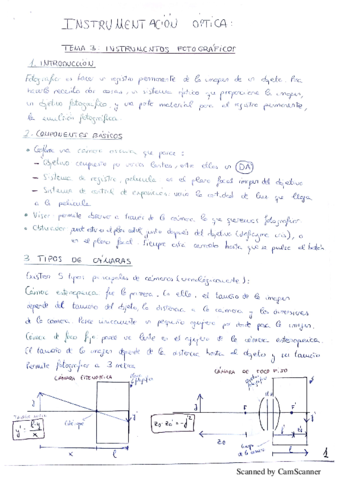 INSTRUMENTACIÓN ÓPTICA:
TEMA 3: INSTRUMENTOS FOTOGRÁFICOS
1. INTRODUCCIÓN
Fotografía es hacer un registro permanente de la imagen de un objeto. Para
hacerlo necesito dos cosas, un sistema óptico que proporcione la imagen,
un objetivo fotográfico, y una parte material para el registro permanente,
la emulsión fotográfica.
2. COMPONENTES BÁSICOS
una cámara oscura que posee:
- Objetivo compuesto por varias lentes, entre ellas un DA
- Sistema de registro, película en el plano focal imagen del objetivo
- Sistema de control de exposición varía la cantidad de luz que llega
a la película.
Visor: permite observar a través de la cámara lo que queremos fotografiar.
Obturador justo después del objetivo (diafragma iris), o
en el plano focal. Siempre está cerrado hasta que se pulsa el botón
3. TIPOS DE CÁMARAS
Existen 5 tipos principales de cámaras (cronológicamente):
Cámara estenopeica fue la primera. En ella, el tamaño de la imagen
depende del tamaño del objeto, la distancia a la cámara y las dimensiones
de la cámara. Posee únicamente un pequeño agujero por donde pasa la imagen.
Cámara de foco fijo posee una lente en el agujero de la cámara estenopeica.
El tamaño de la imagen depende de la distancia hasta el objetivo y su tamaño
Permite fotografiar a 3 metros
CÁMARA ESTENOPEICA
CÁMARA DE FOCO FIJO
x
l
F'
1
Scanned by CamScanner